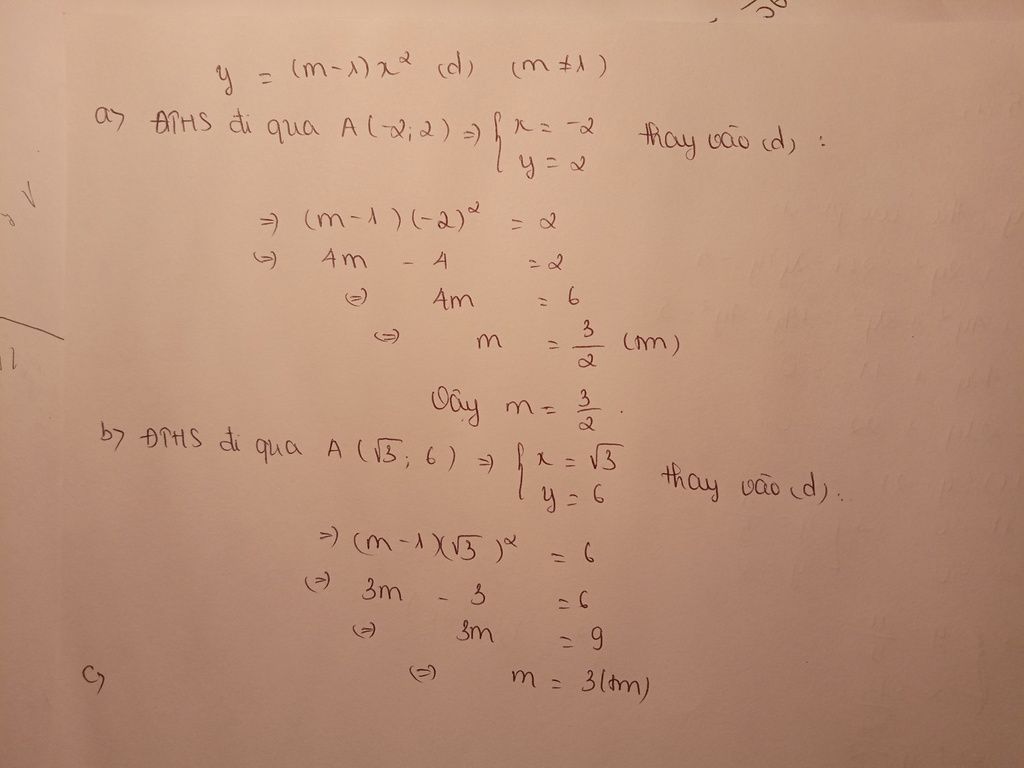 y = (m-1)x² (d) (m ≠ 1)
a> ĐTHS đi qua A(-2;2) => { x = -2 thay vào (d) :
y = 2
=> (m-1)(-2)² = 2
(=) 4m - 4 = 2
(=) 4m = 6
(=) m = 3/2 (tm)
Vậy m = 3/2 .
b> ĐTHS đi qua A(√3; 6) => { x = √3 thay vào (d) :
y = 6
=> (m-1)(√3)² = 6
(=) 3m - 3 = 6
(=) 3m = 9
c> (=) m = 3 (tm)